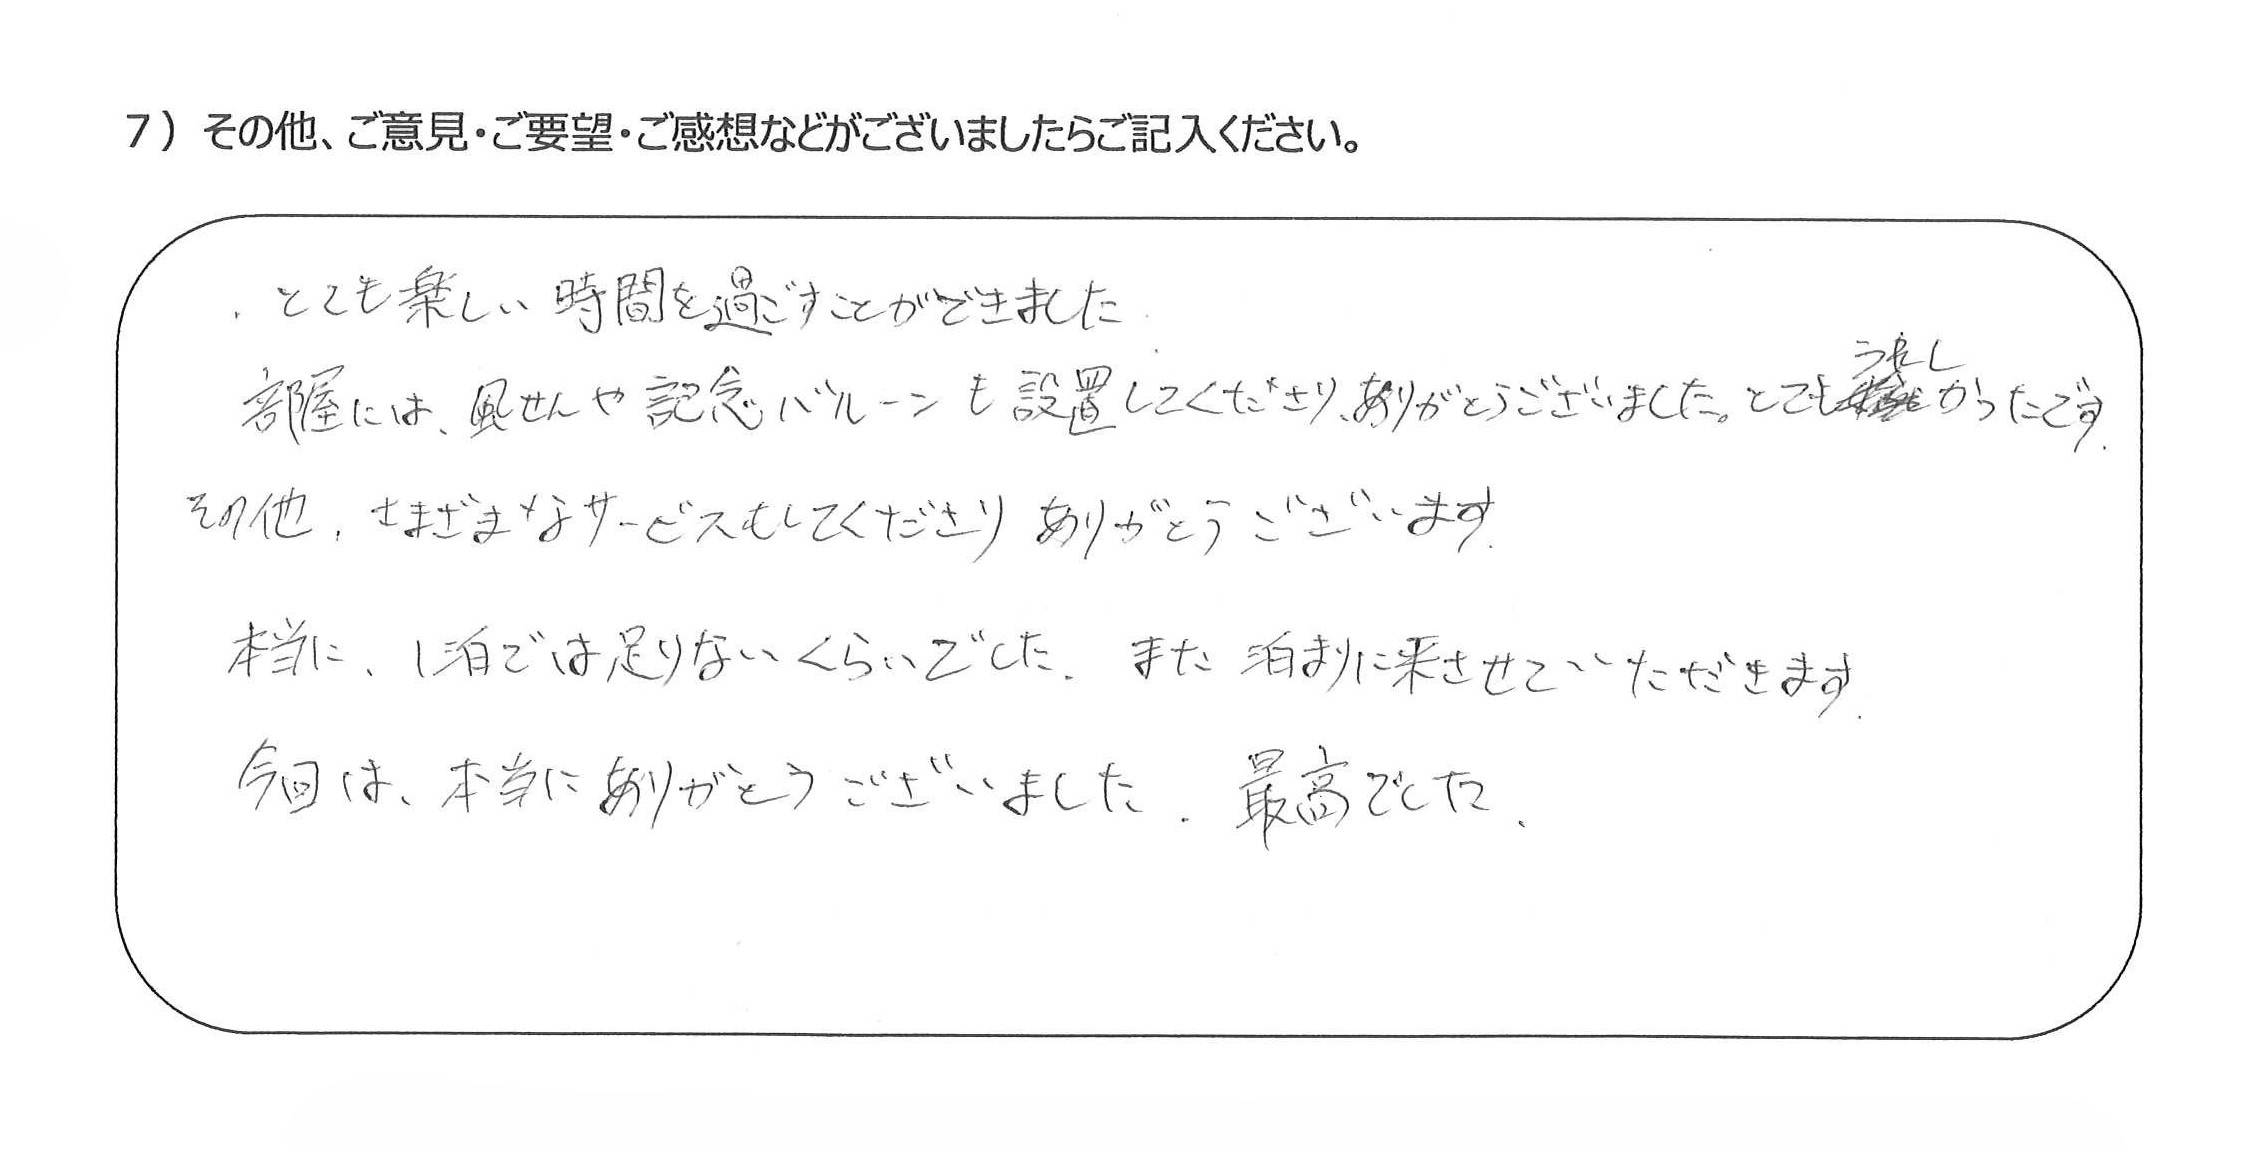 7）その他、ご意見・ご要望・ご感想などがございましたらご記入ください。
・とても楽しい時間を過ごすことができました.
部屋には、風せんや記念バルーンも設置してくださり、ありがとうございました。とてもうれしかったです.
その他、さまざまなサービスもしてくださり ありがとうございます.
本当に、1泊では足りないくらいでした. また 泊まりに来させていただきます.
今回は、本当にありがとうございました. 最高でした.